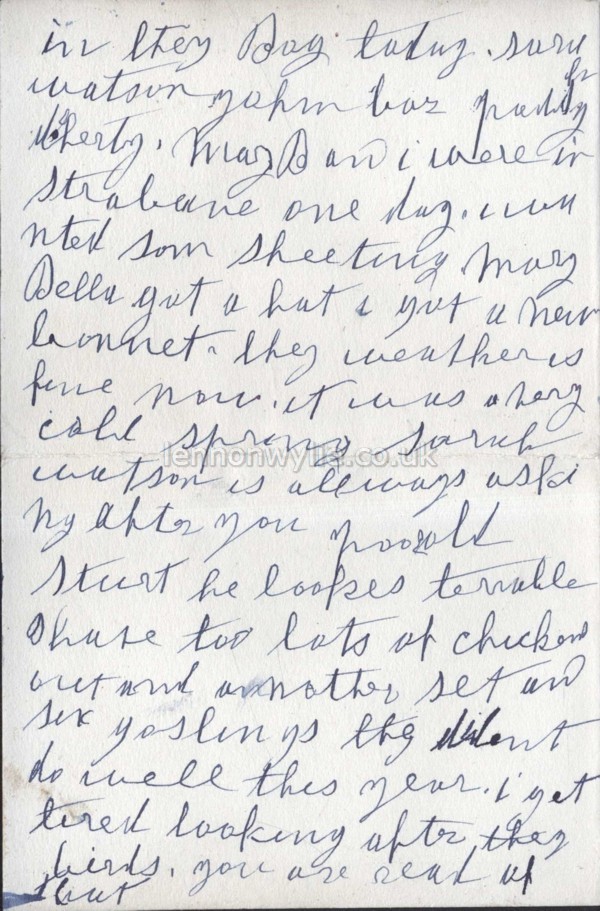 in they Bog today. sara
watson yohn bar paddy
dherty. Mary B and i were in
strabane one day. i wa
nted som sheeting Mary
Bella got a hat i got a new
bonnet. they weather is
fine now. it was a very
cold spring sarah
lennonwylie.co.uk
watson is allways aski
ng after you poor old
Sturt he lookes terrable
I have too lots of chickens
out and annother set and
six goslings the dident
do well this year. i get
tired looking after they
birds. you are read of
that